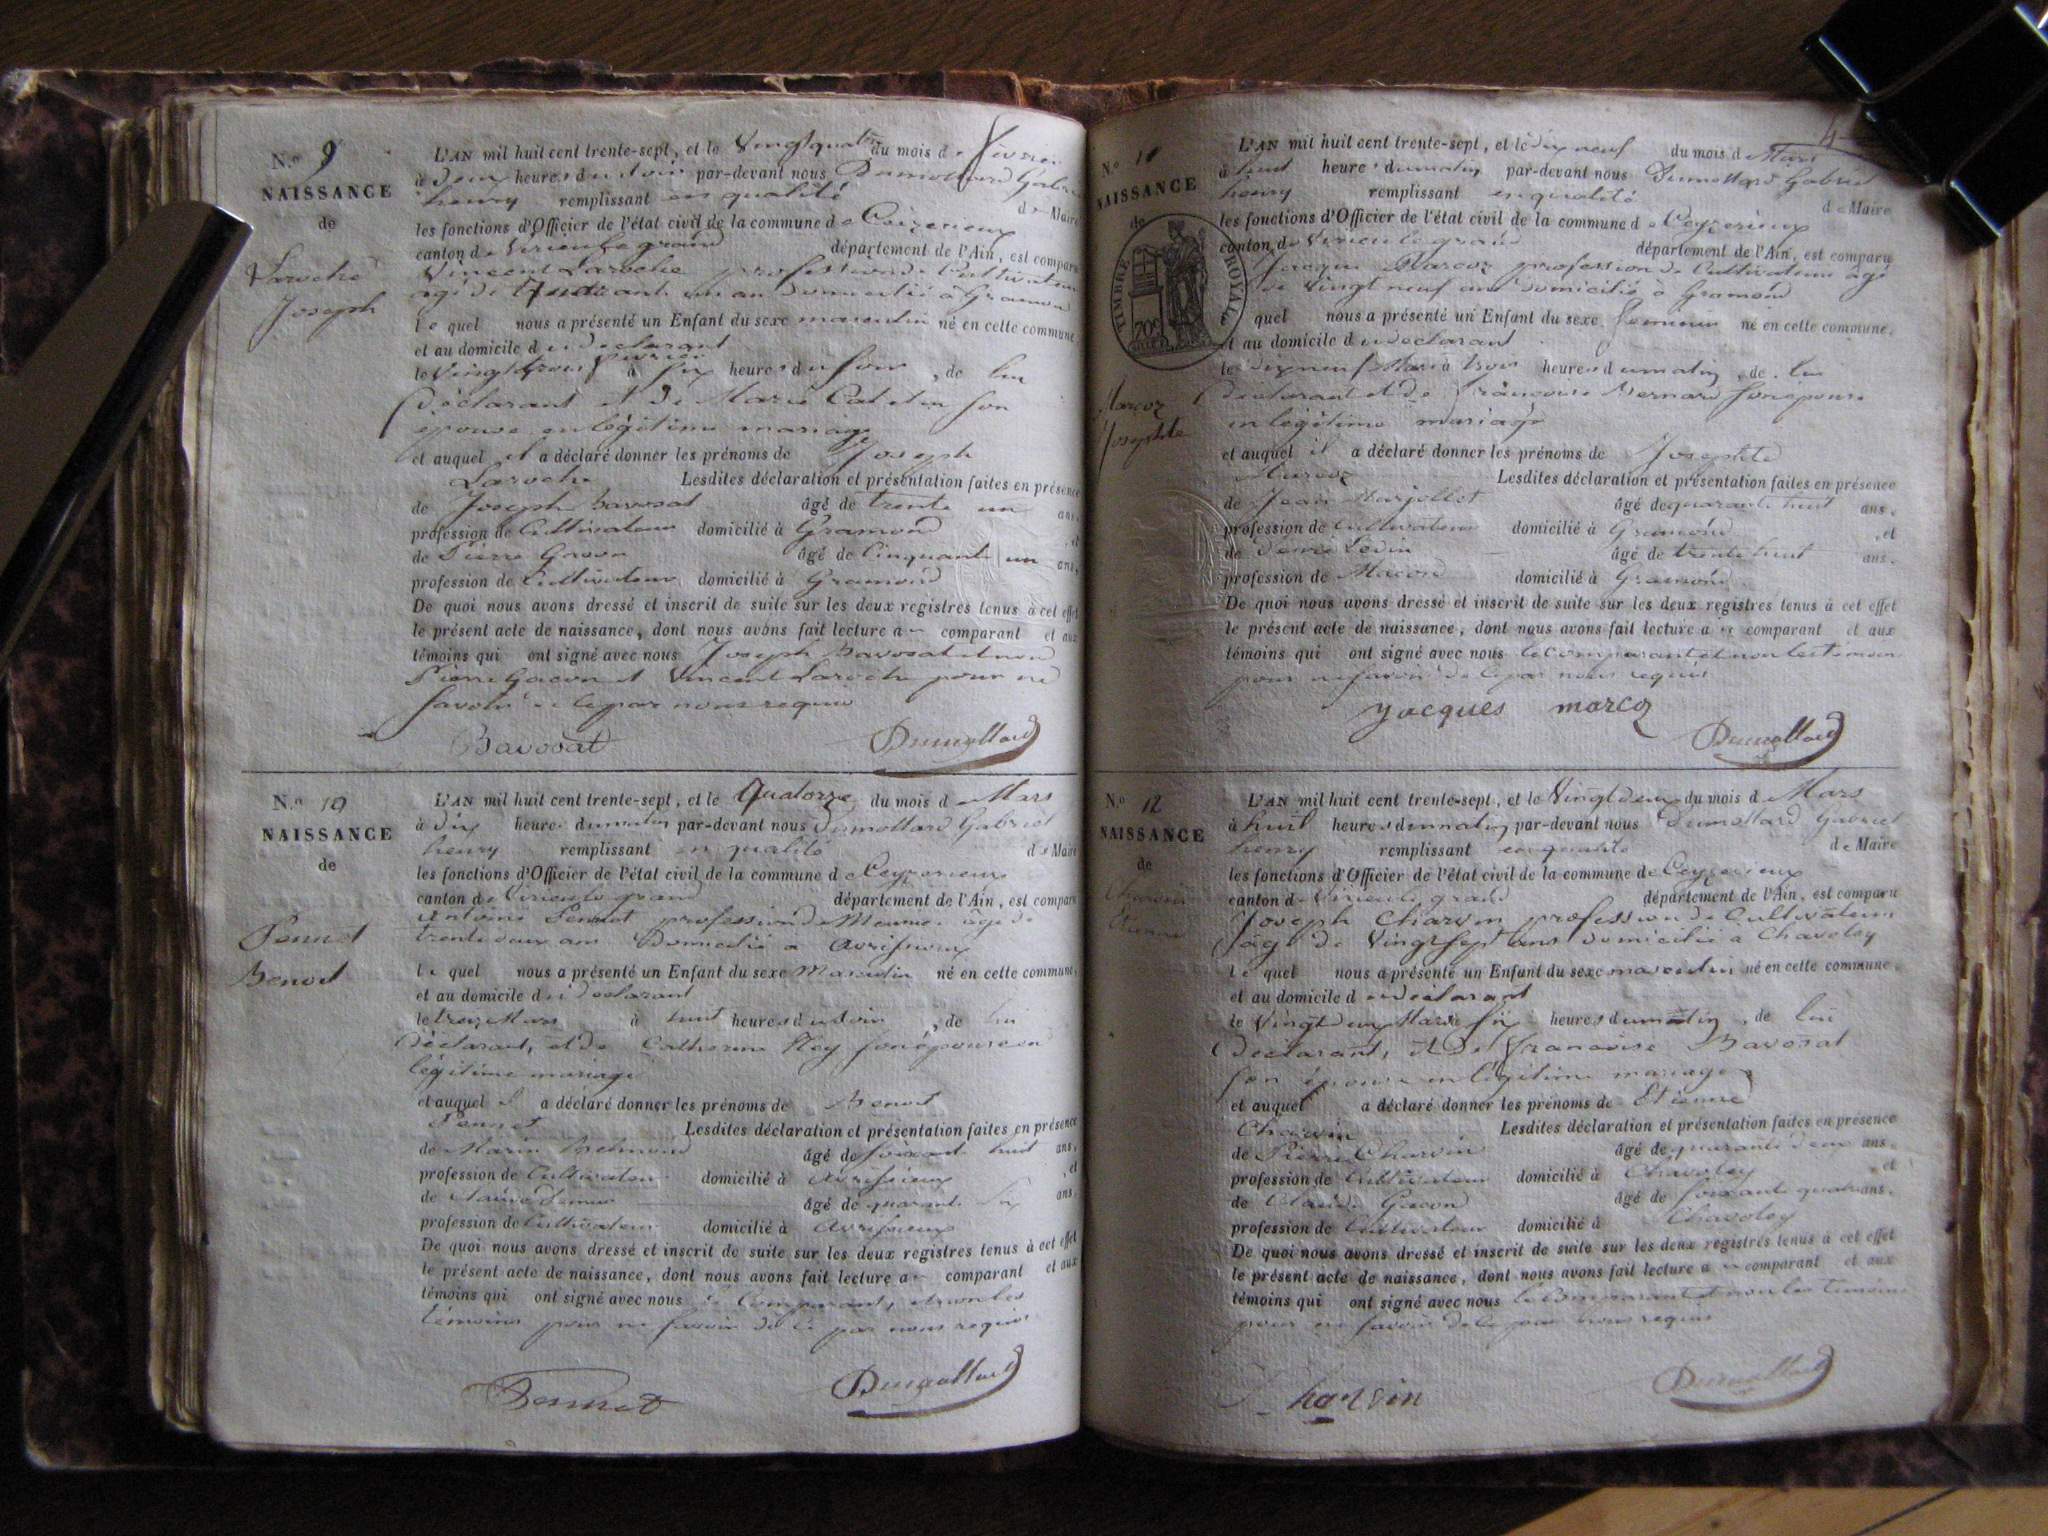 N.° 9
NAISSANCE
de
Laroche
Joseph
L'AN mil huit cent trente-sept, et le Vingt quatre du mois de février
à deux heures du soir par-devant nous Dumollard Gabriel
henry remplissant en qualité de Maire
les fonctions d'Officier de l'état civil de la commune de Ceyzerieux
canton de Virieu le grand département de l'Ain, est comparu
Vincent Laroche profession de Cultivateur
âgé de quarante un an domicilié à Gramond
le quel nous a présenté un Enfant du sexe masculin né en cette commune,
et au domicile du declarant
le Vingt trois février à six heures du soir, de lui
déclarant et de Marie Catelin son
épouse en légitime mariage
et auquel il a déclaré donner les prénoms de Joseph
Laroche Lesdites déclaration et présentation faites en présence
de Joseph Bavosat âgé de trente un ans,
profession de Cultivateur domicilié à Gramond, et
de Pierre Gacon âgé de Cinquante un ans,
profession de Cultivateur domicilié à Gramond
De quoi nous avons dressé et inscrit de suite sur les deux registres tenus à cet effet
le présent acte de naissance, dont nous avons fait lecture au comparant et aux
témoins qui ont signé avec nous Joseph Bavosat et non
Pierre Gacon et Vincent Laroche pour ne
savoir de ce par nous requis
Bavosat Dumollard
N.° 10
NAISSANCE
de
Pennet
Benoit
L'AN mil huit cent trente-sept, et le Quatorze du mois de Mars
à dix heures du matin par-devant nous Dumollard Gabriel
henry remplissant en qualité de Maire
les fonctions d'Officier de l'état civil de la commune de Ceyzerieux
canton de Virieu le grand département de l'Ain, est comparu
Antoine Pennet profession de Meunier âgé de
trente deux ans Domicilié à Avrissieux
le quel nous a présenté un Enfant du sexe Masculin né en cette commune,
et au domicile du declarant
le treize Mars à huit heures du soir, de lui
déclarant, et de Catherine Rey son épouse en
légitime mariage
et auquel il a déclaré donner les prénoms de Benoit
Pennet Lesdites déclaration et présentation faites en présence
de Marin âgé de soixante huit ans,
profession de Cultivateur domicilié à Avrissieux, et
de Claude âgé de quarante six ans.
profession de Cultivateur domicilié à Avrissieux
De quoi nous avons dressé et inscrit de suite sur les deux registres tenus à cet effet
le présent acte de naissance, dont nous avons fait lecture au comparant et aux
témoins qui ont signé avec nous le Comparant, et non les
témoins pour ne savoir de ce par nous requis
Pennet Dumollard
4
N.° 11
NAISSANCE
de
TIMBRE ROYAL
70c
Marcoz
Josephte
L'AN mil huit cent trente-sept, et le dix neuf du mois de Mars
à huit heures du matin par-devant nous Dumollard Gabriel
henry remplissant en qualité de Maire
les fonctions d'Officier de l'état civil de la commune de Ceyzerieux
canton de Virieu le grand département de l'Ain, est comparu
Jacques Marcoz profession de Cultivateur âgé
de Vingt neuf ans domicilié à Gramond
le quel nous a présenté un Enfant du sexe feminin né en cette commune,
et au domicile du declarant
le dix neuf Mars à trois heures du matin, de lui
declarant et de françoise Bernard son épouse
en légitime mariage
et auquel il a déclaré donner les prénoms de Josephte
Marcoz Lesdites déclaration et présentation faites en présence
de Jean Marjollet âgé de quarante huit ans,
profession de Cultivateur domicilié à Gramond, et
de âgé de trente huit ans.
profession de Maçon domicilié à Gramond
De quoi nous avons dressé et inscrit de suite sur les deux registres tenus à cet effet
le présent acte de naissance, dont nous avons fait lecture au comparant et aux
témoins qui ont signé avec nous le comparant et non les temoins
pour ne savoir de ce par nous requis
Jacques marcoz
Dumollard
N.° 12
NAISSANCE
de
Charvin
Etienne
L'AN mil huit cent trente-sept, et le Vingt deux du mois de Mars
à huit heures du matin par-devant nous Dumollard Gabriel
henry remplissant en qualité de Maire
les fonctions d'Officier de l'état civil de la commune de Ceyzerieux
canton de Virieu le grand département de l'Ain, est comparu
Joseph Charvin profession de Cultivateur
âgé de Vingt sept ans domicilié à Chavoley
le quel nous a présenté un Enfant du sexe masculin né en cette commune,
et au domicile du déclarant
le Vingt deux Mars à six heures du matin, de lui
déclarant, et de françoise Bavosat
son épouse en légitime mariage
et auquel a déclaré donner les prénoms de Etienne
Charvin Lesdites déclaration et présentation faites en présence
de Pierre Charvin âgé de quarante deux ans,
profession de Cultivateur domicilié à Chavoley, et
de Claude Gacon âgé de soixante quatre ans.
profession de Cultivateur domicilié à Chavoley
De quoi nous avons dressé et inscrit de suite sur les deux registres tenus à cet effet
le présent acte de naissance, dont nous avons fait lecture au comparant et aux
témoins qui ont signé avec nous le Comparant et non les temoins
pour ne savoir de ce par nous requis
J Charvin Dumollard